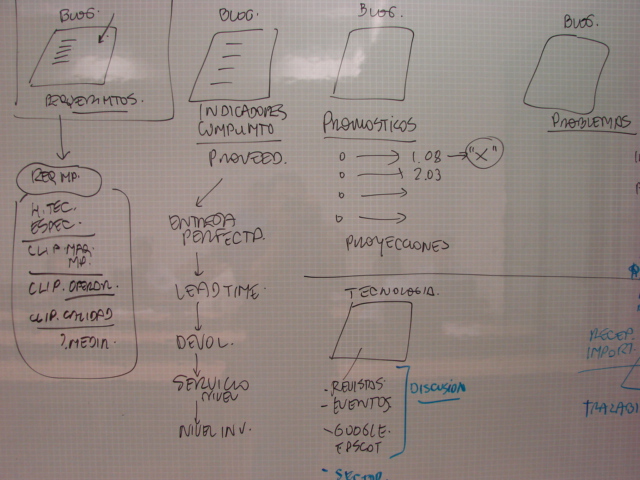 BLOG.
REQUERIMTOS.
REQ MP.
H. TEC.
ESPEC.
CLIP. MAQ.
MP.
CLIP. OPERAR.
CLIP. CALIDAD
?. MEDIR.
BLOG.
INDICADORES
CUMPLIMTO
PROVEED.
ENTREGA
PERFECTA.
LEAD TIME.
DEVOL.
SERVICIO
NIVEL
NIVEL INV.
BLOG.
PRONOSTICOS
0 → 1.08 → "X"
0 → 2.03
0 →
0 →
PROYECCIONES
TECNOLOGIA.
- REVISTAS
- EVENTOS
- GOOGLE.
EPSCOT
DISCUSION
• SECTOR
BLOG.
PROBLEMAS
RECEP.
IMPORT.